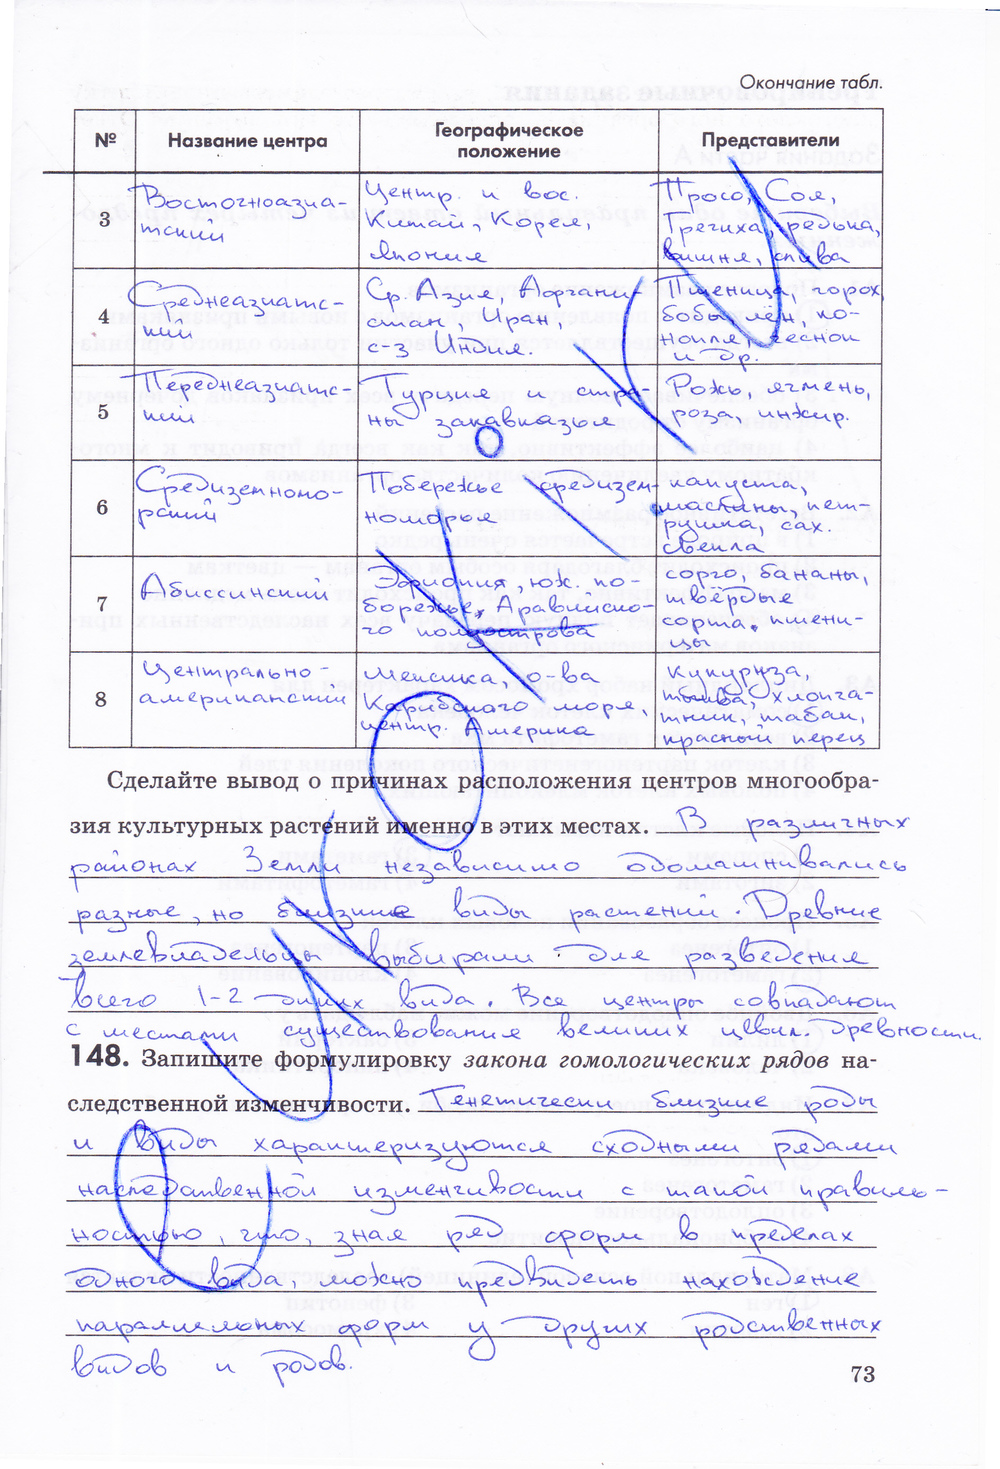 Окончание табл.
№ Название центра Географическое положение Представители
3 Восточноазиа-
тский
Центр. и вос.
Китай, Корея,
Япония
Просо, Соя,
Гречиха, редька,
вишня, слива
4 Среднеазиатс-
кий
Ср. Азия, Афгани-
стан, Иран,
с-з Индия.
Пшеница, горох,
бобы, лён, ко-
нопля, чеснок
и др.
5 Переднеазиатс-
кий
Турция и стра-
ны закавказья
Рожь, ячмень,
роза, инжир.
6 Средиземномо-
рский
Побережье средизем-
номорья
капуста,
маслины, пет-
рушка, сах.
свекла
7 Абиссинский
Эфиопия, юж. по-
бережье, Аравийско-
го полуострова
сорго, бананы,
твёрдые
сорта пшени-
цы
8 Центрально-
американский
Мексика, о-ва
Карибского моря,
центр. Америка
Кукуруза,
тыква, хлопча-
тник, табак,
красный перец
Сделайте вывод о причинах расположения центров многообра-
зия культурных растений именно в этих местах. В различных
районах Земли независимо одомашнивались
разные, но близкие виды растений. Древние
земледельцы выбирали для разведения
всего 1-2 диких вида. Все центры совпадают
с местами существования великих цивил. древности.
148. Запишите формулировку закона гомологических рядов на-
следственной изменчивости. Генетически близкие роды
и виды характеризуются сходными рядами
наследственной изменчивости с такой правиль-
ностью, что, зная ряд форм в пределах
одного вида, можно предвидеть нахождение
параллельных форм у других родственных
видов и родов.
73